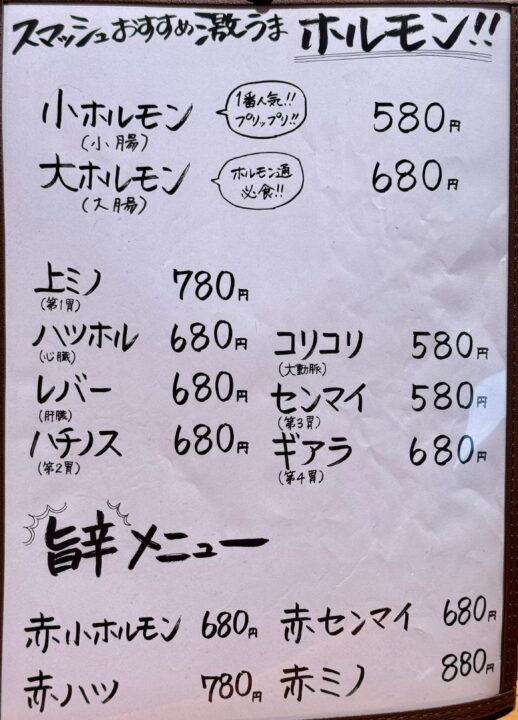 スマッシュおすすめ激うま ホルモン!!
小ホルモン 1番人気!! プリップリ!! 580円
(小腸)
大ホルモン ホルモン通 必食!! 680円
(大腸)
上ミノ 780円
(第1胃)
ハツホル 680円 コリコリ 580円
(心臓) (大動脈)
レバー 680円 センマイ 580円
(肝臓) (第3胃)
ハチノス 680円 ギアラ 680円
(第2胃) (第4胃)
旨辛メニュー
赤小ホルモン 680円 赤センマイ 680円
赤ハツ 780円 赤ミノ 880円